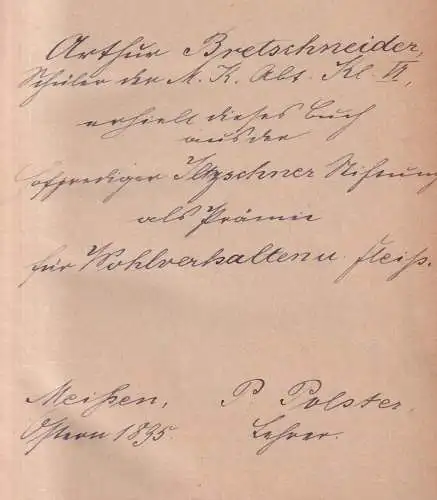 Arthur Bretschneider,
Schüler der M. K. Abt. Kl. VI,
erhielt dieses Buch
aus der
Hofprediger Stiftung
als Prämie
für Wohlverhalten u. Fleiß.
Meißen, P. Polster,
Ostern 1895. Lehrer.